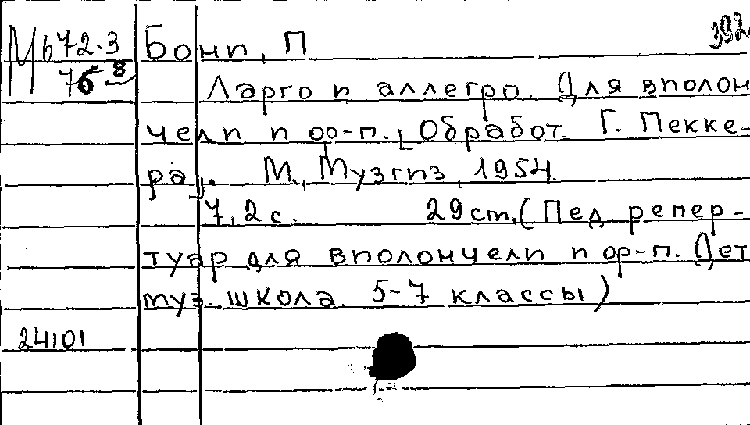 Мб72.3 Бони, П 392
76 8
Ларго и аллегро. Для виолон
чели и ф-п. [Обработ. Г. Пекке-
ра]. М., Музгиз, 1954.
7,2 с. 29 cm. (Пед. репер-
туар для виолончели и ф-п. Дет.
муз. школа. 5-7 классы)
24101